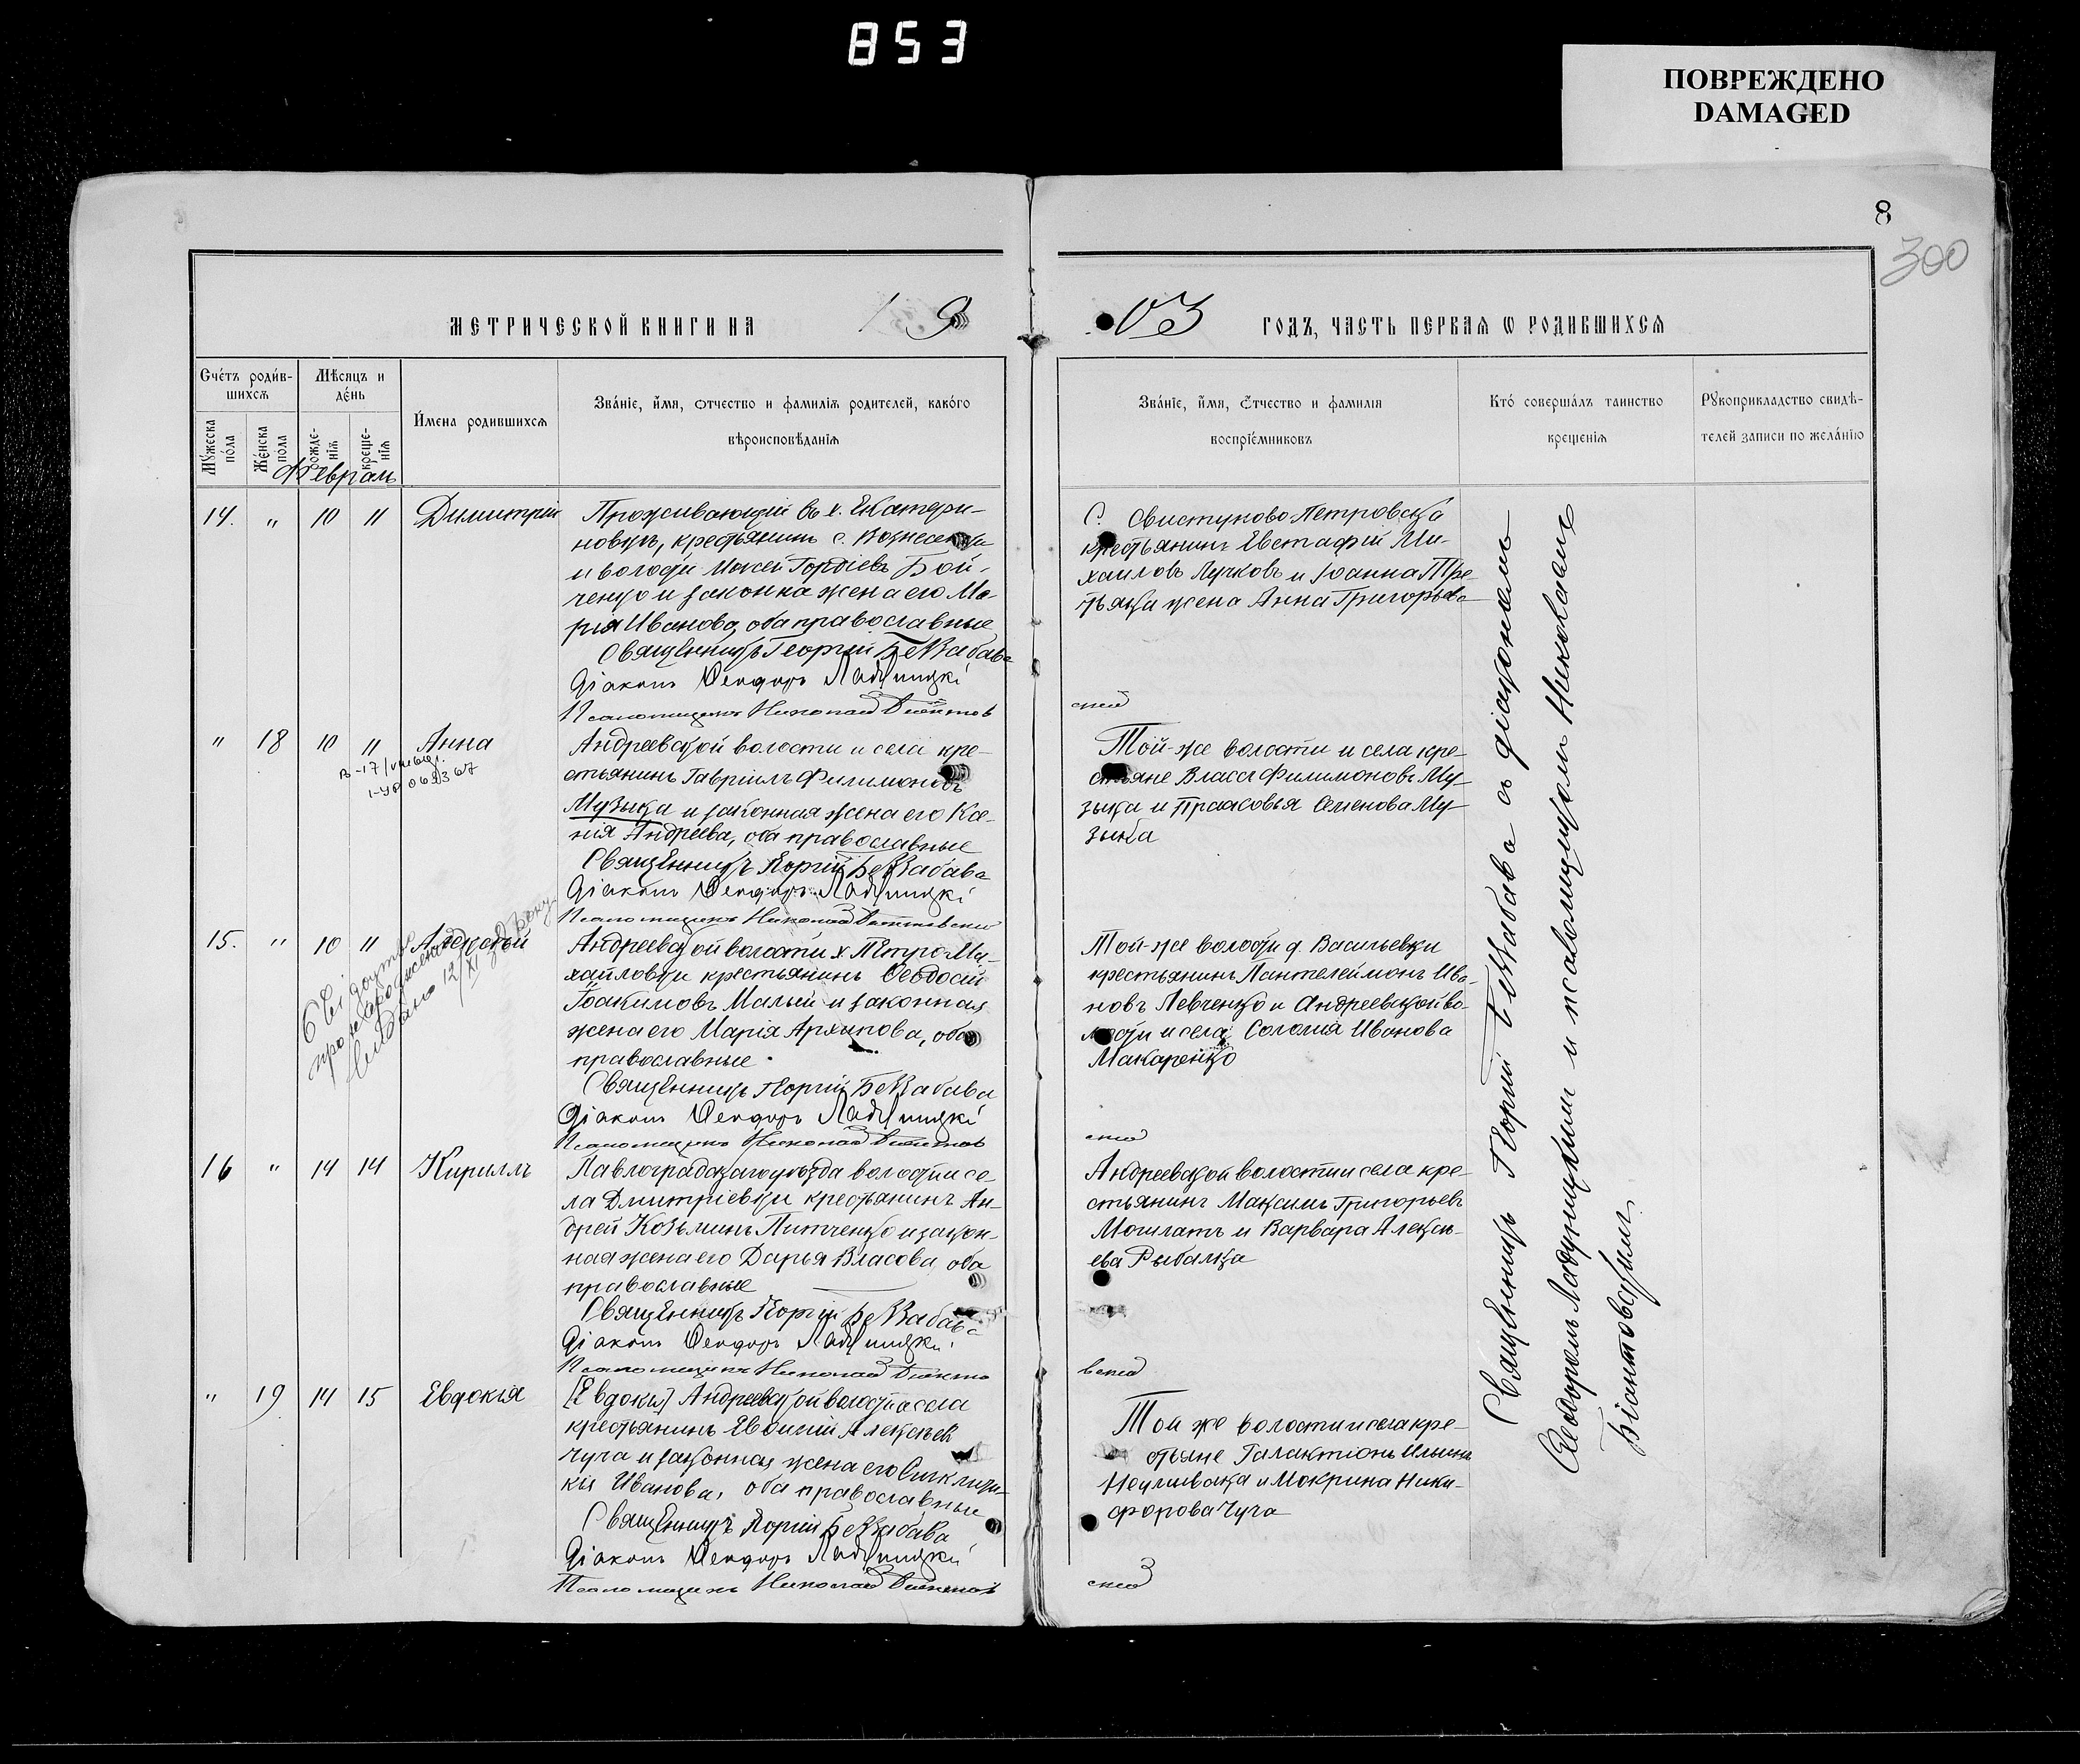 853
ПОВРЕЖДЕНО
DAMAGED
8
300
МЕТРИЧЕСКОЙ КНИГИ НА 19
03 ГОДЪ, ЧАСТЬ ПЕРВАЯ Ѡ РОДИВШИХСЯ
Счетъ родив-
шихся
Мѣсяцъ и
день
Имена родившихся
Званіе, имя, отчество и фамилія родителей, какого
вѣроисповѣданія
Мужеска
пола
Женска
пола
рожде-
нія
креще-
нія
Званіе, имя, отчество и фамилія
воспріемниковъ
Кто совершалъ таинство
крещенія
Рукоприкладство свидѣ-
телей записи по желанію
Февраль
14. " 10 11 Димитрій
Проживающій въ х. Екатери-
новкѣ, крестьянинъ с. Вознесенки
и волости Моисей Гордіевъ Бой-
ченко и законна жена его Ма-
рія Иванова, оба православные
Священникъ Георгій Беззабава
Діаконъ Ѳеодоръ Ладухицкі
Псаломщикъ Николай Біантов
С. Свистуново-Петровска
крестьянинъ Евстафій Ми-
хаиловъ Лучковъ и Іоанна Тре-
тьяка жена Анна Григорьева
скій
" 18 10 11 Анна
Андреевской волости и села кре-
стьянинъ Гавріилъ Филимоновъ
Музыка и законная жена его Ксе-
нія Андреева, оба православные
Священникъ Георгій Беззабава
Діаконъ Ѳеодоръ Ладухицкі
Псаломщикъ Николай Біантовскій
Той-же волости и села кре-
стьяне Власъ Филимоновъ Му-
зыка и Прасковья Семенова Му-
зыка
15. " 10 11 Алексѣй
Андреевской волости х. Петро-Ми-
хайловки крестьянинъ Ѳеодосій
Іоакимовъ Малый и законная
жена его Марія Архипова, оба
православные
Священникъ Георгій Беззабава
Діаконъ Ѳеодоръ Ладухицкі
Псаломщикъ Николай Біантов
Той-же волости д. Васильевки
крестьянинъ Пантелеймонъ Ива-
новъ Левченко и Андреевской во-
лости и села Соломія Иванова
Макаренко
скій
16 " 14 14 Кириллъ
Павлоградскаго уѣзда волости и се-
ла Дмитріевки крестьянинъ Ан-
дрей Козьминъ Питченко и закон-
ная жена его Дарья Власова, оба
православные
Священникъ Георгій Беззабава
Діаконъ Ѳеодоръ Ладухицкі
Псаломщикъ Николай Біанто
Андреевской волости и села кре-
стьянинъ Максимъ Григорьевъ
Мошлатъ и Варвара Алексѣ-
ева Рыбалка
вскій
" 19 14 15 Евдокія
[Евдокія] Андреевской волости и села
крестьянинъ Евфимій Алексѣевъ
Чуча и законная жена его Сикклити-
кія Иванова, оба православные
Священникъ Георгій Беззабава
Діаконъ Ѳеодоръ Ладухицкій
Псаломщикъ Николай Біантов
Той же волости и села кре-
стьяне Галактіонъ Ильинъ
Неуливака и Мокрина Ники-
форова Чуча
скій
Священникъ Георгій Беззабава съ діакономъ
Ѳеодоромъ Ладухицкимъ и псаломщикомъ Николаемъ
Біантовскимъ.